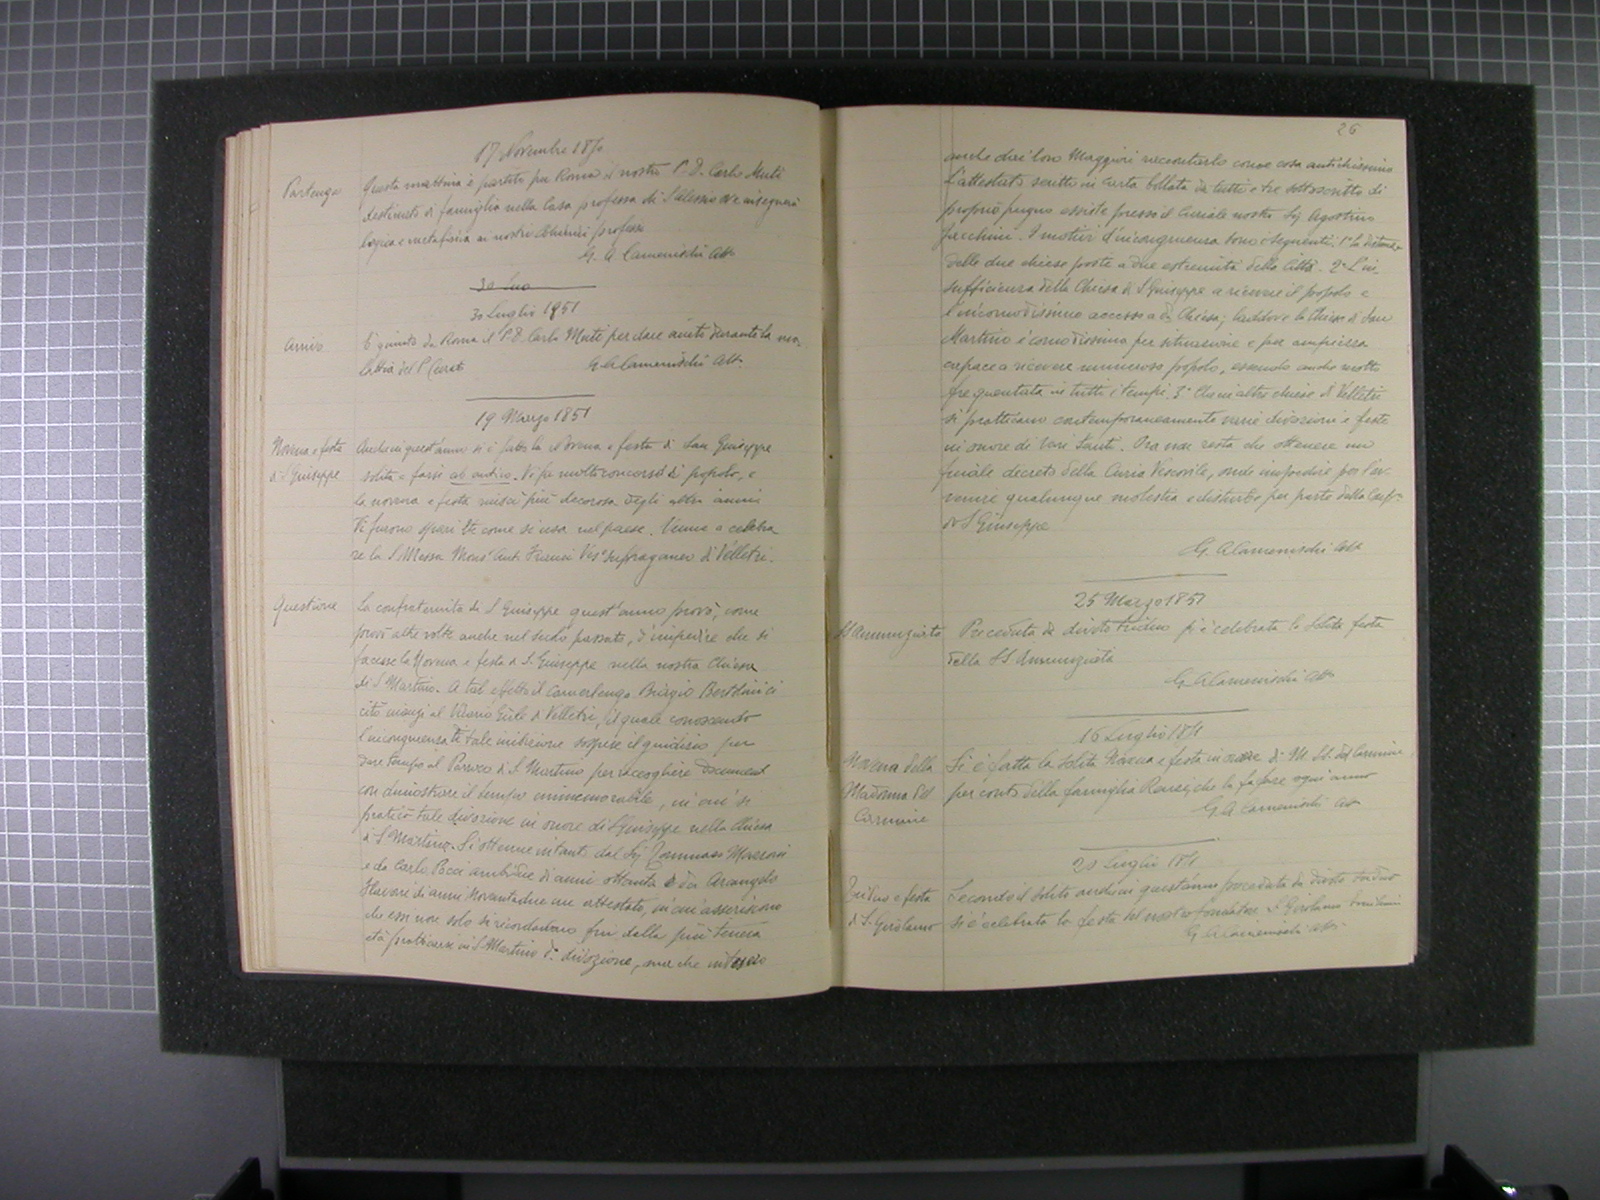 17 Novembre 1850
Partenza
Questa mattina è partito per Roma il nostro P. D. Carlo Muti
destinato di famiglia nella Casa professa di S Alessio ove insegnerà
logica e metafisica ai nostri Chierici professi
G. A. Camenischi Att.
30 Lug
30 Luglio 1851
Arrivo
È giunto da Roma il P. D. Carlo Muti per dare aiuto durante la ma-
lattia del P. Curato
G A Camenischi Att.
19 Marzo 1851
Novena e festa
di S. Giuseppe
Anche in quest'anno si è fatta la Novena e festa di San Giuseppe
solita a farsi ab antico. Vi fu molto concorso di popolo, e
la novena e festa riuscì più decorosa degli altri anni
Vi furono spari come si usa nel paese. Venne a celebra
re la S. Messa Mons Ant. Vesc Suffraganeo di Velletri.
Questione
La confraternita di S Giuseppe quest'anno provò, come
provò altre volte anche nel secolo passato, d'impedire che si
facesse la Novena e festa di S. Giuseppe nella nostra Chiesa
di S Martino. A tal effetto il Camerlengo Biagio Bertolini ci
citò innanzi al Vicario Gnle di Velletri, il quale conoscendo
l'incongruenza di tale inibizione sospese il giudizio per
dare tempo al Parroco di S. Martino per raccogliere Documenti
con dimostrare il tempo immemorabile, in cui si
praticò tale divozione in onore di S Giuseppe nella Chiesa
di S Martino. Si ottenne intanto dal Sig Tommaso
e da Carlo Bea ambidue di anni ottanta e da Arcangelo
di anni Novantadue un attestato, in cui asseriscono
che essi non solo si ricordavano fin dalla più tenera
età praticarsi in S. Martino d. divozione, ma che
26
anche dai loro Maggiori raccontarlo come cosa antichissima
L'attestato scritto in carta bollata da tutti e tre sottoscritto di
proprio pugno esiste presso il Curiale nostro Sig Agostino
Jacchini. I motivi d'incongruenza sono i seguenti. 1° La distanza
delle due chiese poste a due estremità della Città. 2° L'in-
sufficienza della Chiesa di S Giuseppe a ricevere il popolo e
l'incomodissimo accesso a da Chiesa; laddove la Chiesa di San
Martino è comodissima per situazione e per ampiezza
capace a ricevere numeroso popolo, essendo anche molto
frequentata in tutti i tempi. 3° Che in altre chiese di Velletri
si pratticano contemporaneamente varie divozioni e feste
in onore di vari Santi. Ora non resta che ottenere un
finale decreto della Curia Vescovile, onde impedire per l'av-
venire qualunque molestia e disturbo per parte della Conf.
di S Giuseppe
G. A Camenischi Att
25 Marzo 1851
SS Annunziata
Preceduta da divoto triduo si è celebrata la solita festa
della SS. Annunziata
G. A Camenischi Att.
16 Luglio 1851
Novena della
Madonna del
Carmine
Si è fatta la solita Novena e festa in onore di M. SS. del Carmine
per conto della famiglia che la fa fare ogni anno
G. A. Camenischi Att
20 Luglio 1851
Triduo e festa
di S. Girolamo
Secondo il solito anche in quest'anno preceduta da divoto triduo
si è celebrata la festa del nostro fondatore S. Girolamo Emiliani
G. A Camenischi Att.